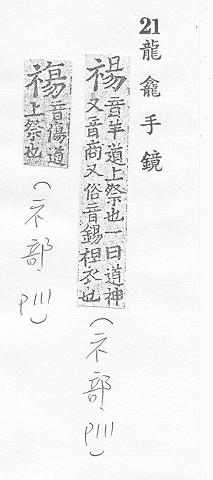 21龍龕手鏡
禓音羊道上祭也一曰道神
又音商又俗音錫袒衣也
(示部,P111)
禓音傷道
上祭也
(示部,P111)